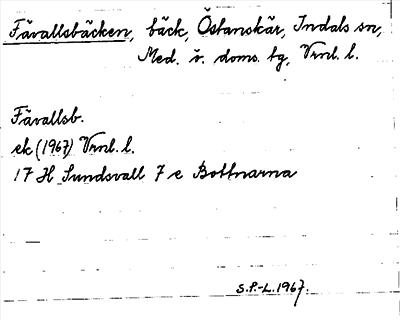 Fävallsbäcken, bäck, Östanskär, Indals sn,
Med. v. doms. tg, Vrnl. l.
Fävallsb.
ek (1967) Vrnl. l.
17 H Sundsvall 7 e Bottnarna
S.P.-L. 1967.